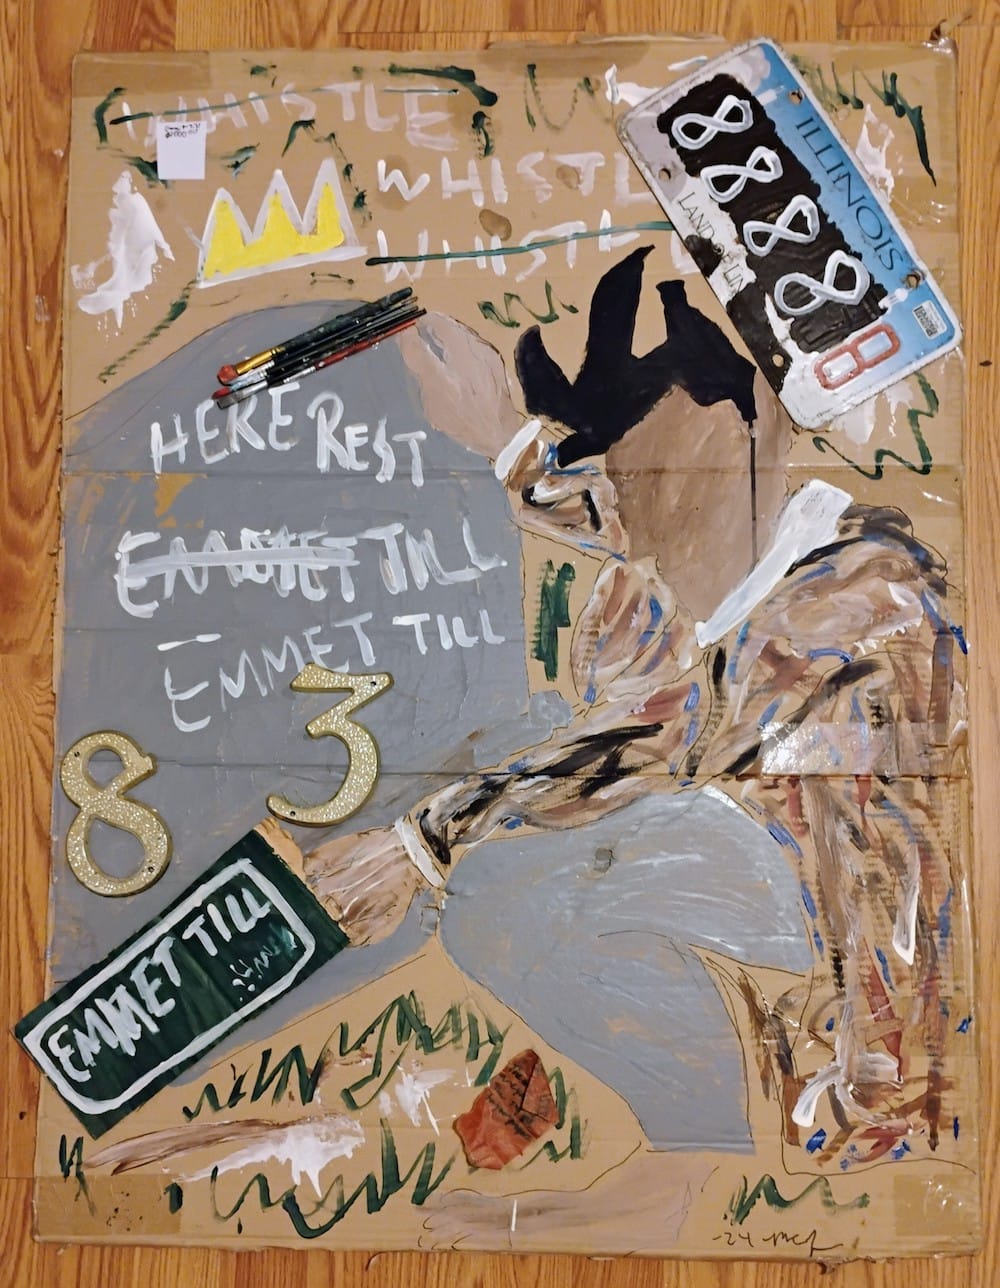 WHISTLE
WHISTL
WHISTL
ILLINOIS
8888
8
HERE REST
EMMET TILL
EMMET TILL
8 3
EMMET TILL
-24